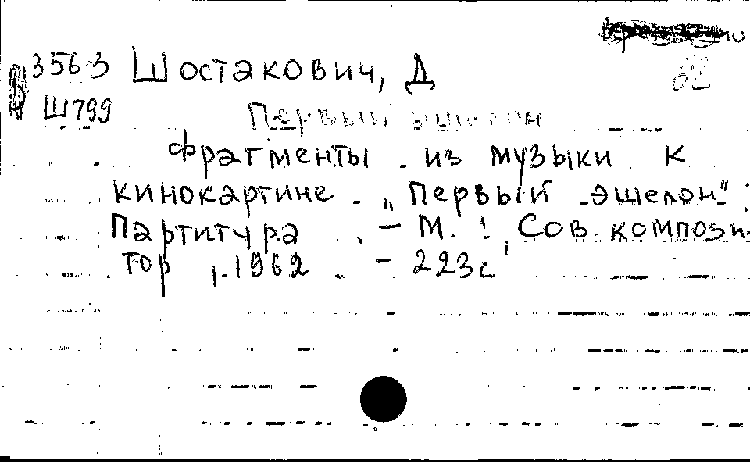 3563 Шостакович, Д
Ш799
Первый эшелон
Фрагменты из музыки к
кинокартине „Первый эшелон":
Партитура. - М.: Сов. компози-
тор, 1962. - 223с